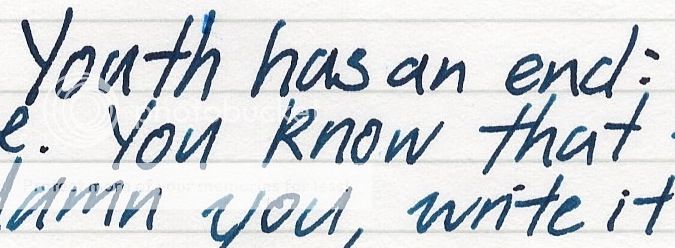 Youth has an end:
e. You know that
damn you, write it